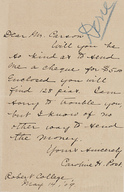 Dear Mr. Carson:
Will you be
so kind as to send
me a cheque for
Enclosed you will
find
I am
sorry to trouble you,
but I know of no
other way to send
the money.
Yours sincerely
Caroline H.
Robert College.
May 14,